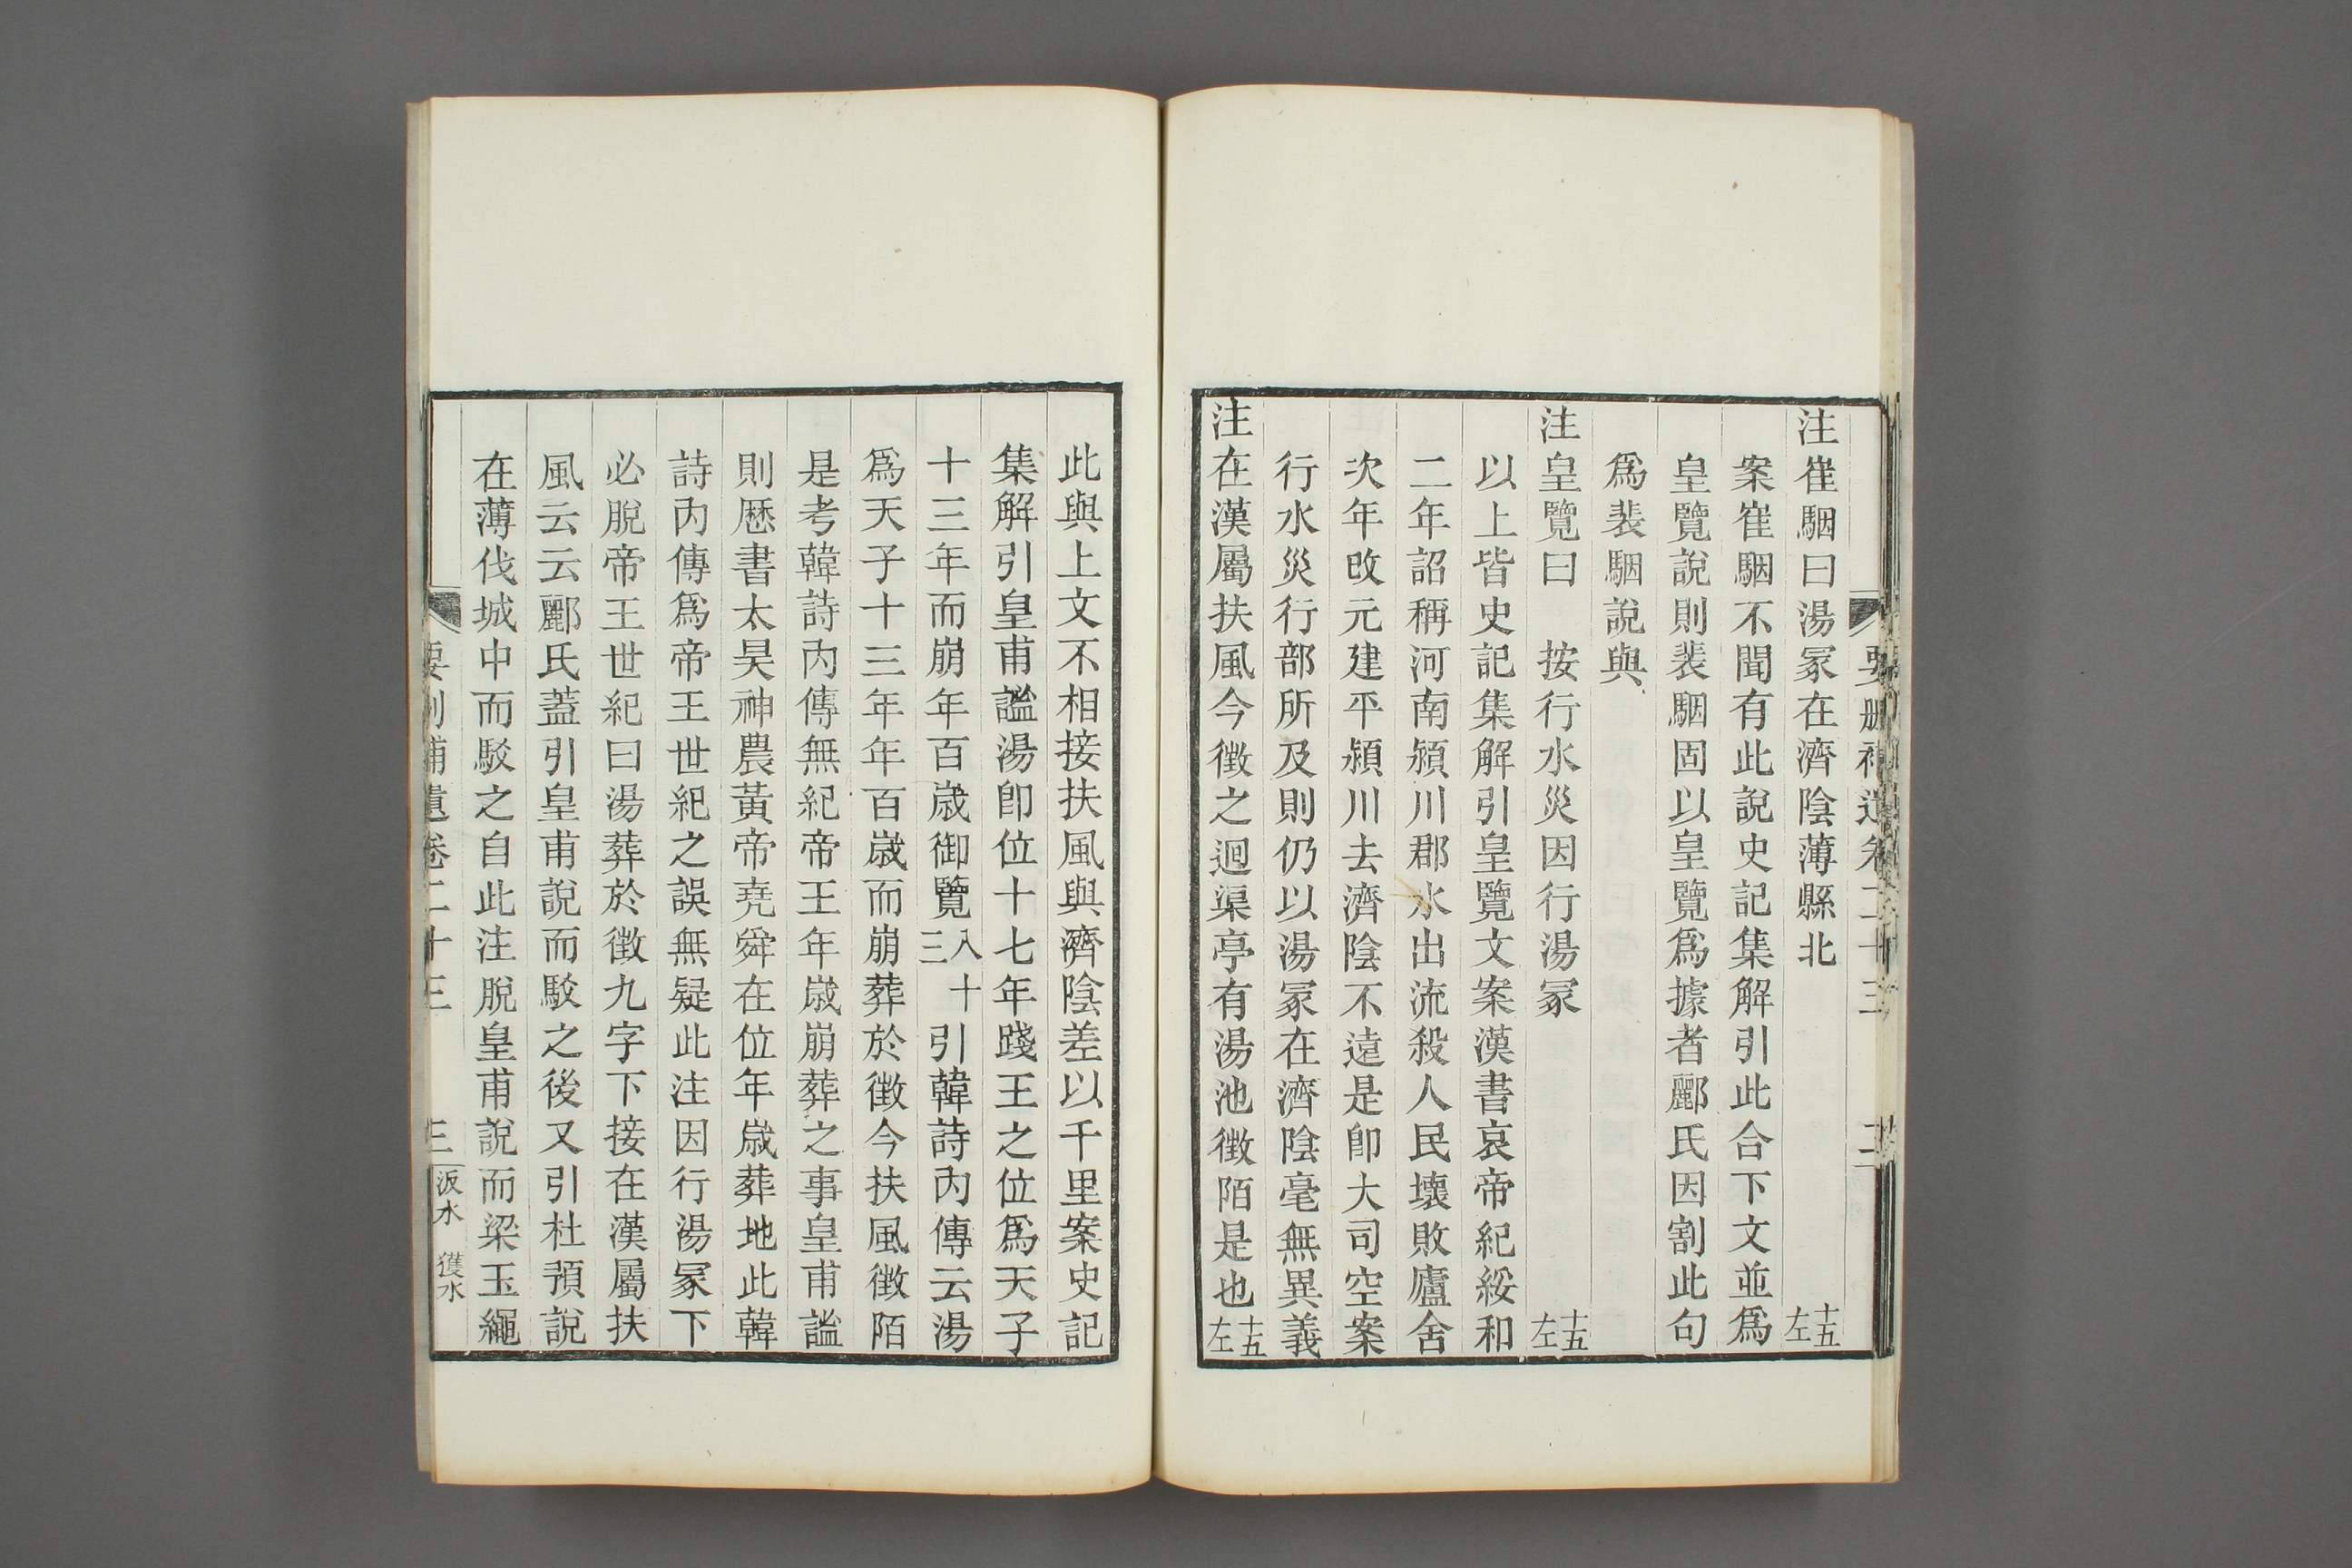 注崔駰曰湯冢在濟陰薄縣北 十五左
案崔駰不聞有此說史記集解引此合下文並爲
皇覽說則裴駰固以皇覽爲據者酈氏因割此句
爲裴駰說與
注皇覽曰 按行水災因行湯冢 十五左
以上皆史記集解引皇覽文案漢書哀帝紀綏和
二年詔稱河南潁川郡水出流殺人民壞敗廬舍
次年改元建平潁川去濟陰不遠是卽大司空案
行水災行部所及則仍以湯冢在濟陰毫無異義
注在漢屬扶風今徵之迴渠亭有湯池徵陌是也 十五左
此與上文不相接扶風與濟陰差以千里案史記
集解引皇甫謐湯卽位十七年踐王之位爲天子
十三年而崩年百歲御覽八十三引韓詩內傳云湯
爲天子十三年年百歲而崩葬於徵今扶風徵陌
是考韓詩內傳無紀帝王年歲崩葬之事皇甫謐
則歷書太昊神農黃帝堯舜在位年歲葬地此韓
詩內傳爲帝王世紀之誤無疑此注因行湯冢下
必脫帝王世紀曰湯葬於徵九字下接在漢屬扶
風云云酈氏蓋引皇甫說而駁之後又引杜預說
在薄伐城中而駁之自此注脫皇甫說而梁玉繩
要刪補遺卷二十三 三 汳水 獲水